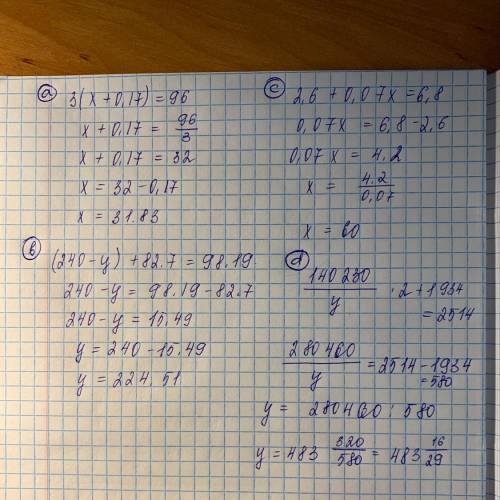 a
3(x+0,17)=96
x+0,17= 96/3
x+0,17=32
x=32-0,17
x=31.83
b
(240-y)+82.7=98.19.
240-y=98.19-82.7
240-y=15.49
y=240-15.49
y=224.51
c
2,6+0,07x=6,8
0,07x=6,8-2,6
0,07x=4.2
x= 4.2/0,07
x=60
d
140230/y ·2+1934
=2514
280460/y =2514-1934
=580
y= 280460:580
y=483 320/580 = 483 16/29